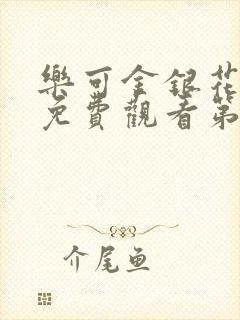 樂可金銀花
免費觀看第
介尾鱼